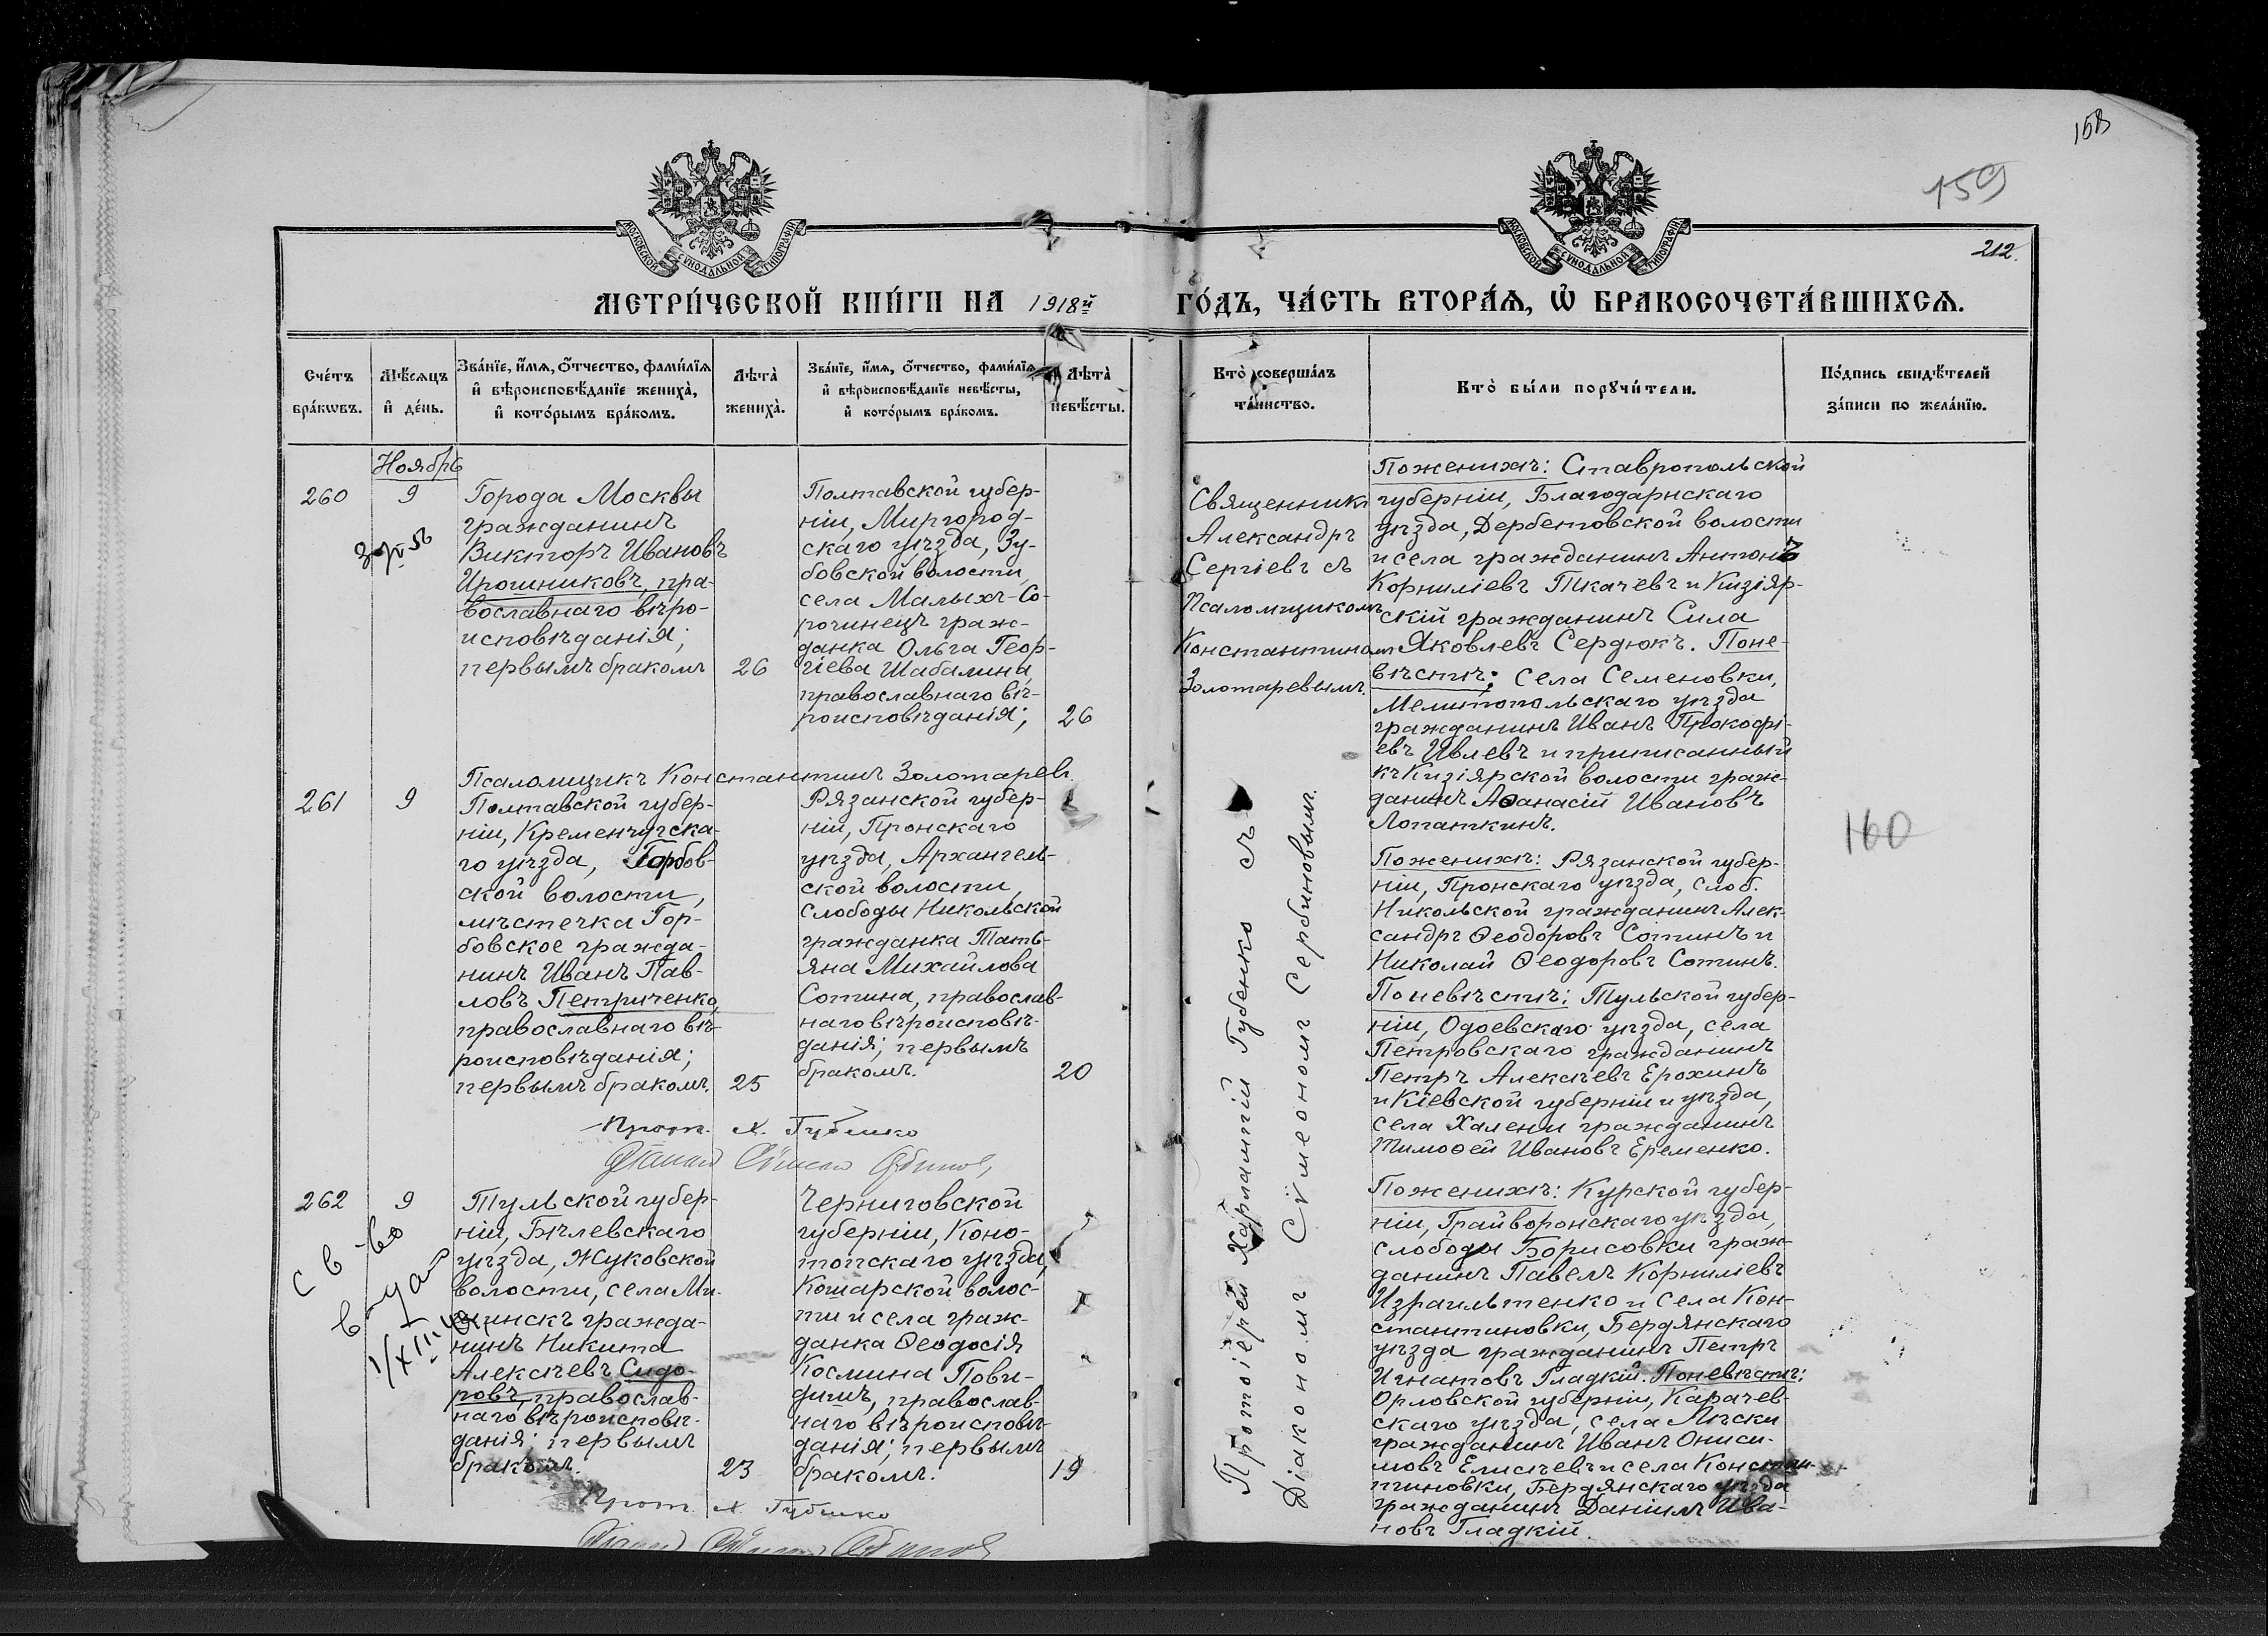 158
159
212.
МОСКОВСКОЙ СѴНОДАЛЬНОЙ ТИПОГРАФІИ
МОСКОВСКОЙ СѴНОДАЛЬНОЙ ТИПОГРАФІИ
МЕТРИ́ЧЕСКОЙ КНИ́ГИ НА 1918й ГО́ДЪ, ЧА́СТЬ ВТОРА́Ѧ, Ѽ БРАКОСОЧЕТА́ВШИХСѦ.
Сче́тъ
бра́кѡвъ.
Мѣ́сѧцъ
и҆ де́нь.
Зва́нїе, и҆́мѧ, ѻ҆́тчество, фами́лїѧ
и҆ вѣроисповѣ́данїе жениха̀,
и҆ кото́рымъ бра́комъ.
Лѣта̀
жениха̀.
Зва́нїе, и҆́мѧ, ѻ҆́тчество, фами́лїѧ
и҆ вѣроисповѣ́данїе невѣ́сты,
и҆ кото́рымъ бра́комъ.
Лѣта̀
невѣ́сты.
Кто̀ соверша́лъ
та́инство.
Кто̀ бы́ли порꙋчи́тели.
По́дпись свидѣ́телей
за́писи по жела́нїю.
Ноябрь
260
9
Города Москвы
гражданинъ
Викторъ Ивановъ
Ирошниковъ, пра-
вославнаго вѣро-
исповѣданія;
первымъ бракомъ
26
Полтавской губер-
ніи, Миргород-
скаго уѣзда, Зу-
бовской волости,
села Малыхъ-Со-
рочинецъ граж-
данка Ольга Геор-
гіева Шабалина,
православнаго вѣ-
роисповѣданія;
26
Священникъ
Александръ
Сергіевъ съ
Псаломщикомъ
Константиномъ
Золотаревымъ.
По женихѣ: Ставропольской
губерніи, Благодарнскаго
уѣзда, Дербетовской волости
и села гражданинъ Антонъ
Корниліевъ Ткачевъ и Кизіяр-
скій гражданинъ Сила
Яковлевъ Сердюкъ. По не-
вѣстѣ: села Семеновки,
Мелитопольскаго уѣзда
гражданинъ Иванъ Прокофі-
евъ Ивлевъ и приписанный
къ Кизіярской волости граж-
данинъ Аѳанасій Ивановъ
Лопаткинъ.
Псаломщикъ Константинъ Золотаревъ.
261
9
Полтавской губер-
ніи, Кременчугска-
го уѣзда, Горбов-
ской волости,
мѣстечка Гор-
бовское гражда-
нинъ Иванъ Пав-
ловъ Петриченко,
православнаго вѣ-
роисповѣданія;
первымъ бракомъ.
25
Рязанской губер-
ніи, Пронскаго
уѣзда, Архангель-
ской волости,
слободы Никольской
гражданка Тать-
яна Михайлова
Сотина, православ-
наго вѣроисповѣ-
данія; первымъ
бракомъ.
20
Протоіерей Харлампій Губенко съ
Діакономъ Сѵмеономъ Сербиновымъ.
По женихѣ: Рязанской губер-
ніи, Пронскаго уѣзда, слоб.
Никольской гражданинъ Алек-
сандръ Ѳеодоровъ Сотинъ и
Николай Ѳеодоровъ Сотинъ.
По невѣстѣ: Тульской губер-
ніи, Одоевскаго уѣзда, села
Петровскаго гражданинъ
Петръ Алексѣевъ Ерохинъ
и Кіевской губерніи и уѣзда,
села Халепи гражданинъ
Тимоѳей Ивановъ Еременко.
160
Прот. Х. Губенко
262
9
Тульской губер-
ніи, Бѣлевскаго
уѣзда, Жуковской
волости, села Ми-
гражда-
нинъ Никита
Алексѣевъ Сидо-
ровъ, православ-
наго вѣроисповѣ-
данія; первымъ
бракомъ.
23
Черниговской
губерніи, Коно-
топскаго уѣзда,
Кошарской волос-
ти и села граж-
данка Ѳеодосія
Космина Пови-
дишъ, православ-
наго вѣроисповѣ-
данія; первымъ
бракомъ.
19
По женихѣ: Курской губер-
ніи, Грайворонскаго уѣзда,
слободы Борисовки граж-
данинъ Павелъ Корниліевъ
Израильтенко и села Кон-
стантиновки, Бердянскаго
уѣзда гражданинъ Петръ
Игнатовъ Гладкій. По невѣстѣ:
Орловской губерніи, Карачев-
скаго уѣзда, села Лѣски
гражданинъ Иванъ Ониси-
мовъ Елисѣевъ и села Констан-
тиновки, Бердянскаго уѣзда
гражданинъ Даніилъ Ива-
новъ Гладкій.
св-во
выдан
Прот. Х. Губенко